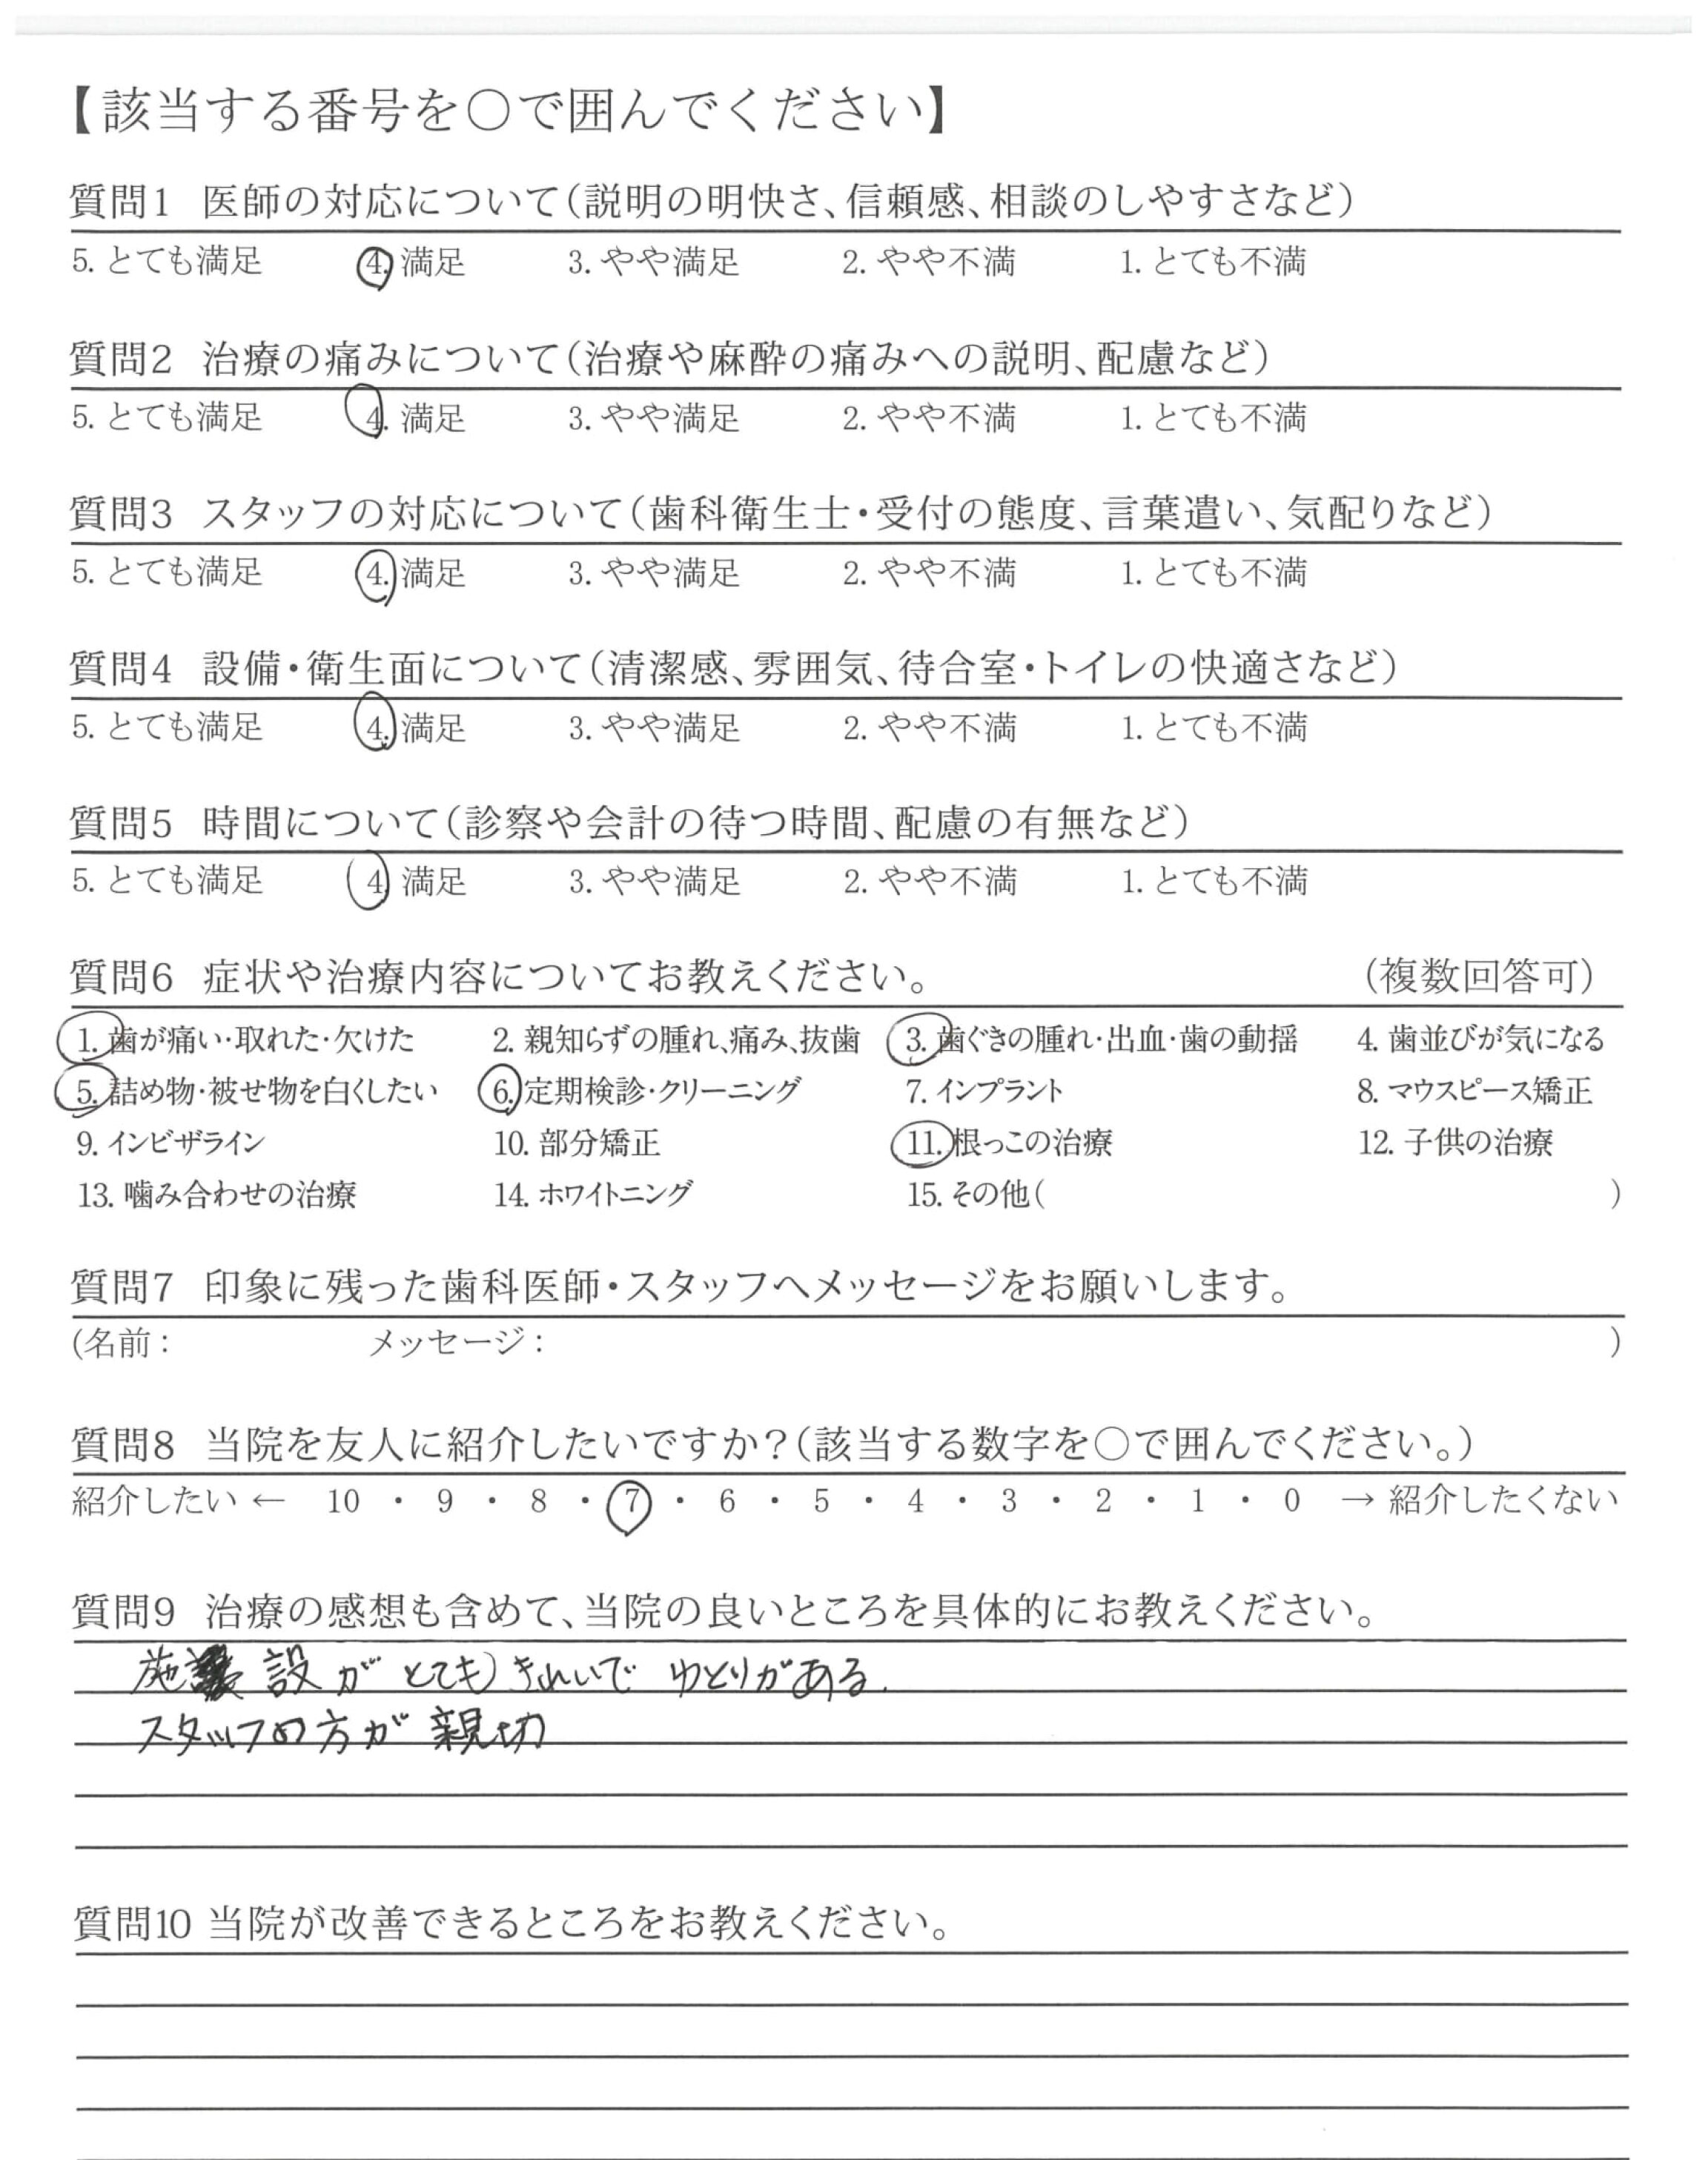 【該当する番号を○で囲んでください】
質問1 医師の対応について(説明の明快さ、信頼感、相談のしやすさなど)
5. とても満足 4. 満足 3. やや満足 2. やや不満 1. とても不満
質問2 治療の痛みについて(治療や麻酔の痛みへの説明、配慮など)
5. とても満足 4. 満足 3. やや満足 2. やや不満 1. とても不満
質問3 スタッフの対応について(歯科衛生士・受付の態度、言葉遣い、気配りなど)
5. とても満足 4. 満足 3. やや満足 2. やや不満 1. とても不満
質問4 設備・衛生面について(清潔感、雰囲気、待合室・トイレの快適さなど)
5. とても満足 4. 満足 3. やや満足 2. やや不満 1. とても不満
質問5 時間について(診察や会計の待つ時間、配慮の有無など)
5. とても満足 4. 満足 3. やや満足 2. やや不満 1. とても不満
質問6 症状や治療内容についてお教えください。 (複数回答可)
1. 歯が痛い・取れた・欠けた 2. 親知らずの腫れ、痛み、抜歯 3. 歯ぐきの腫れ・出血・歯の動揺 4. 歯並びが気になる
5. 詰め物・被せ物を白くしたい 6. 定期検診・クリーニング 7. インプラント 8. マウスピース矯正
9. インビザライン 10. 部分矯正 11. 根っこの治療 12. 子供の治療
13. 噛み合わせの治療 14. ホワイトニング 15. その他( )
質問7 印象に残った歯科医師・スタッフへメッセージをお願いします。
(名前: メッセージ: )
質問8 当院を友人に紹介したいですか?(該当する数字を○で囲んでください。)
紹介したい ← 10 ・ 9 ・ 8 ・ 7 ・ 6 ・ 5 ・ 4 ・ 3 ・ 2 ・ 1 ・ 0 → 紹介したくない
質問9 治療の感想も含めて、当院の良いところを具体的にお教えください。
施設がとてもきれいでゆとりがある.
スタッフの方が親切
質問10 当院が改善できるところをお教えください。